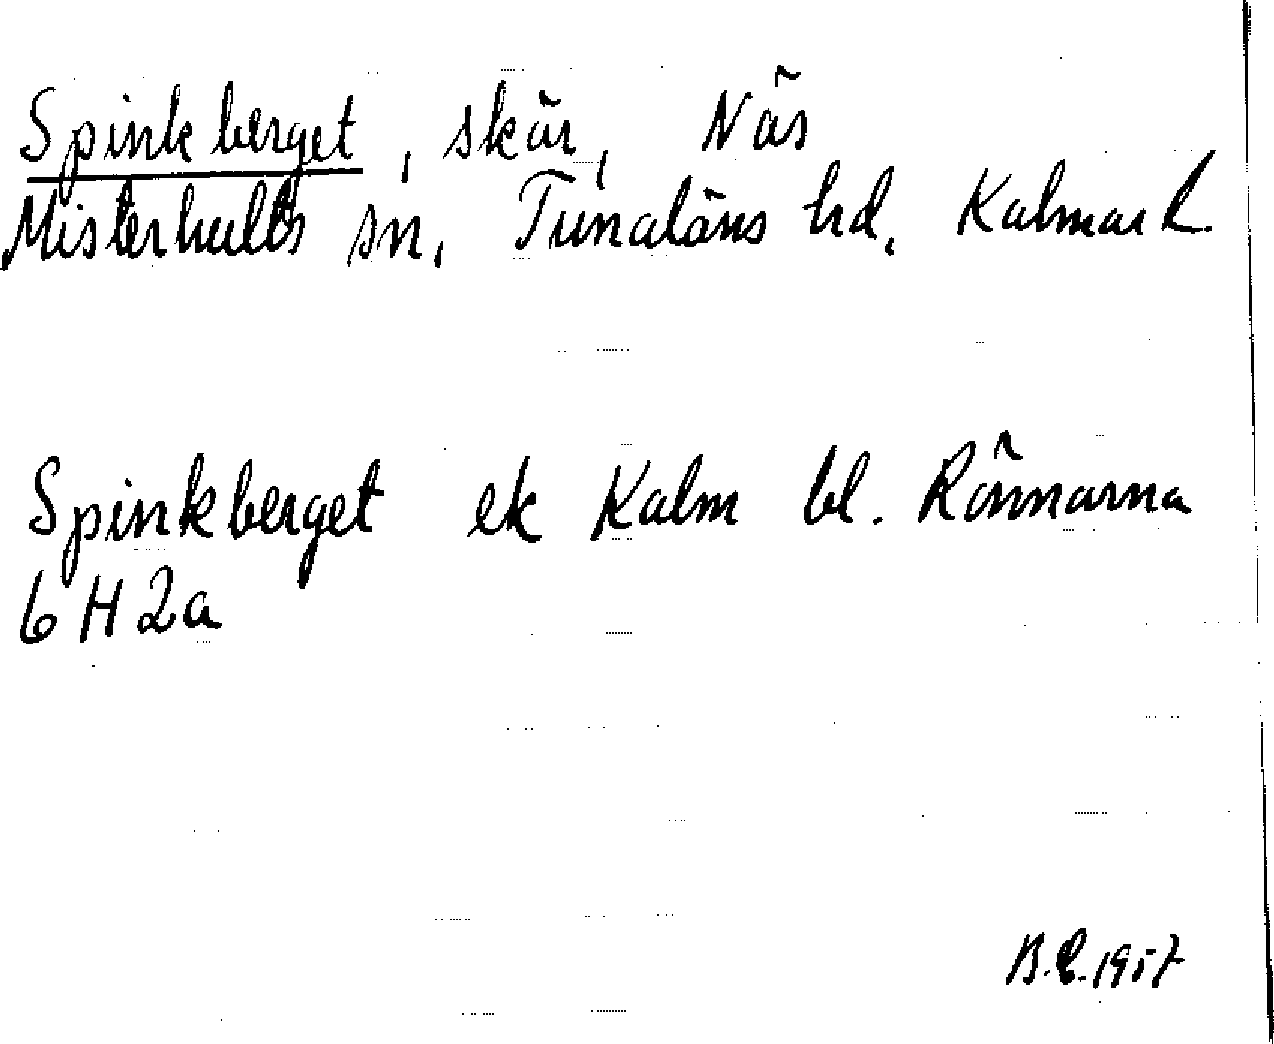 Spinkberget, skär, Näs
Misterhults sn, Tunaläns hd. Kalmar l.
Spinkberget ek Kalm bl. Rönnarna
6 H 2a
B.E. 1957